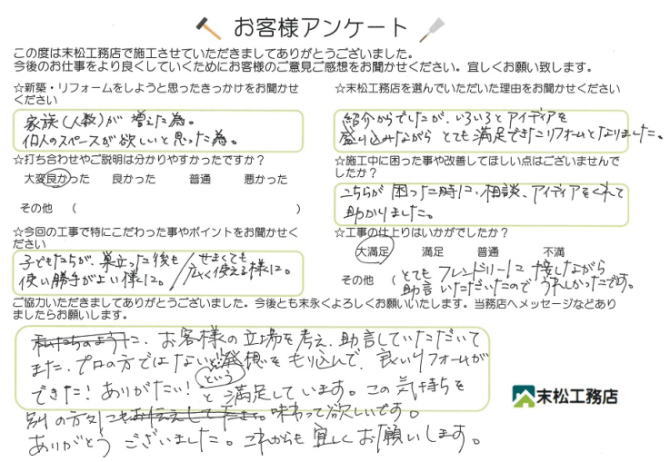 お客様アンケート
この度は末松工務店で施工させていただきましてありがとうございました。
今後のお仕事をより良くしていくためにお客様のご意見ご感想をお聞かせください。宜しくお願い致します。
☆新築・リフォームをしようと思ったきっかけをお聞かせ
ください
家族(人数)が増えた為。
個人のスペースが欲しいと思った為。
☆打ち合わせやご説明は分かりやすかったですか?
大変良かった 良かった 普通 悪かった
その他 ( )
☆今回の工事で特にこだわった事やポイントをお聞かせく
ださい
子どもたちが、巣立った後も
使い勝手がよい様に。/せまくても
広く使える様に。
☆末松工務店を選んでいただいた理由をお聞かせください
紹介からでしたが、いろいろとアイディアを
盛り込みながらとても満足できたリフォームとなりました。
☆施工中に困った事や改善してほしい点はございませんで
したか?
こちらが困った時に、相談、アイディアをくれて
助かりました。
☆工事の仕上りはいかがでしたか?
大満足 満足 普通 不満
その他 (とてもフレンドリーに接しながら
助言いただいたのでうれしかったです。
ご協力いただきましてありがとうございました。今後とも末永くよろしくお願いいたします。当務店へメッセージなどあり
ましたらお願します。
に、お客様の立場を考え、助言していただいて
また、プロの方ではないと発想をもり込んで、良いリフォームが
できた!ありがたい!という
と満足しています。この気持ちを
別の方々にも味わって欲しいです。
ありがとうございました。これからも宜しくお願いします。
末松工務店